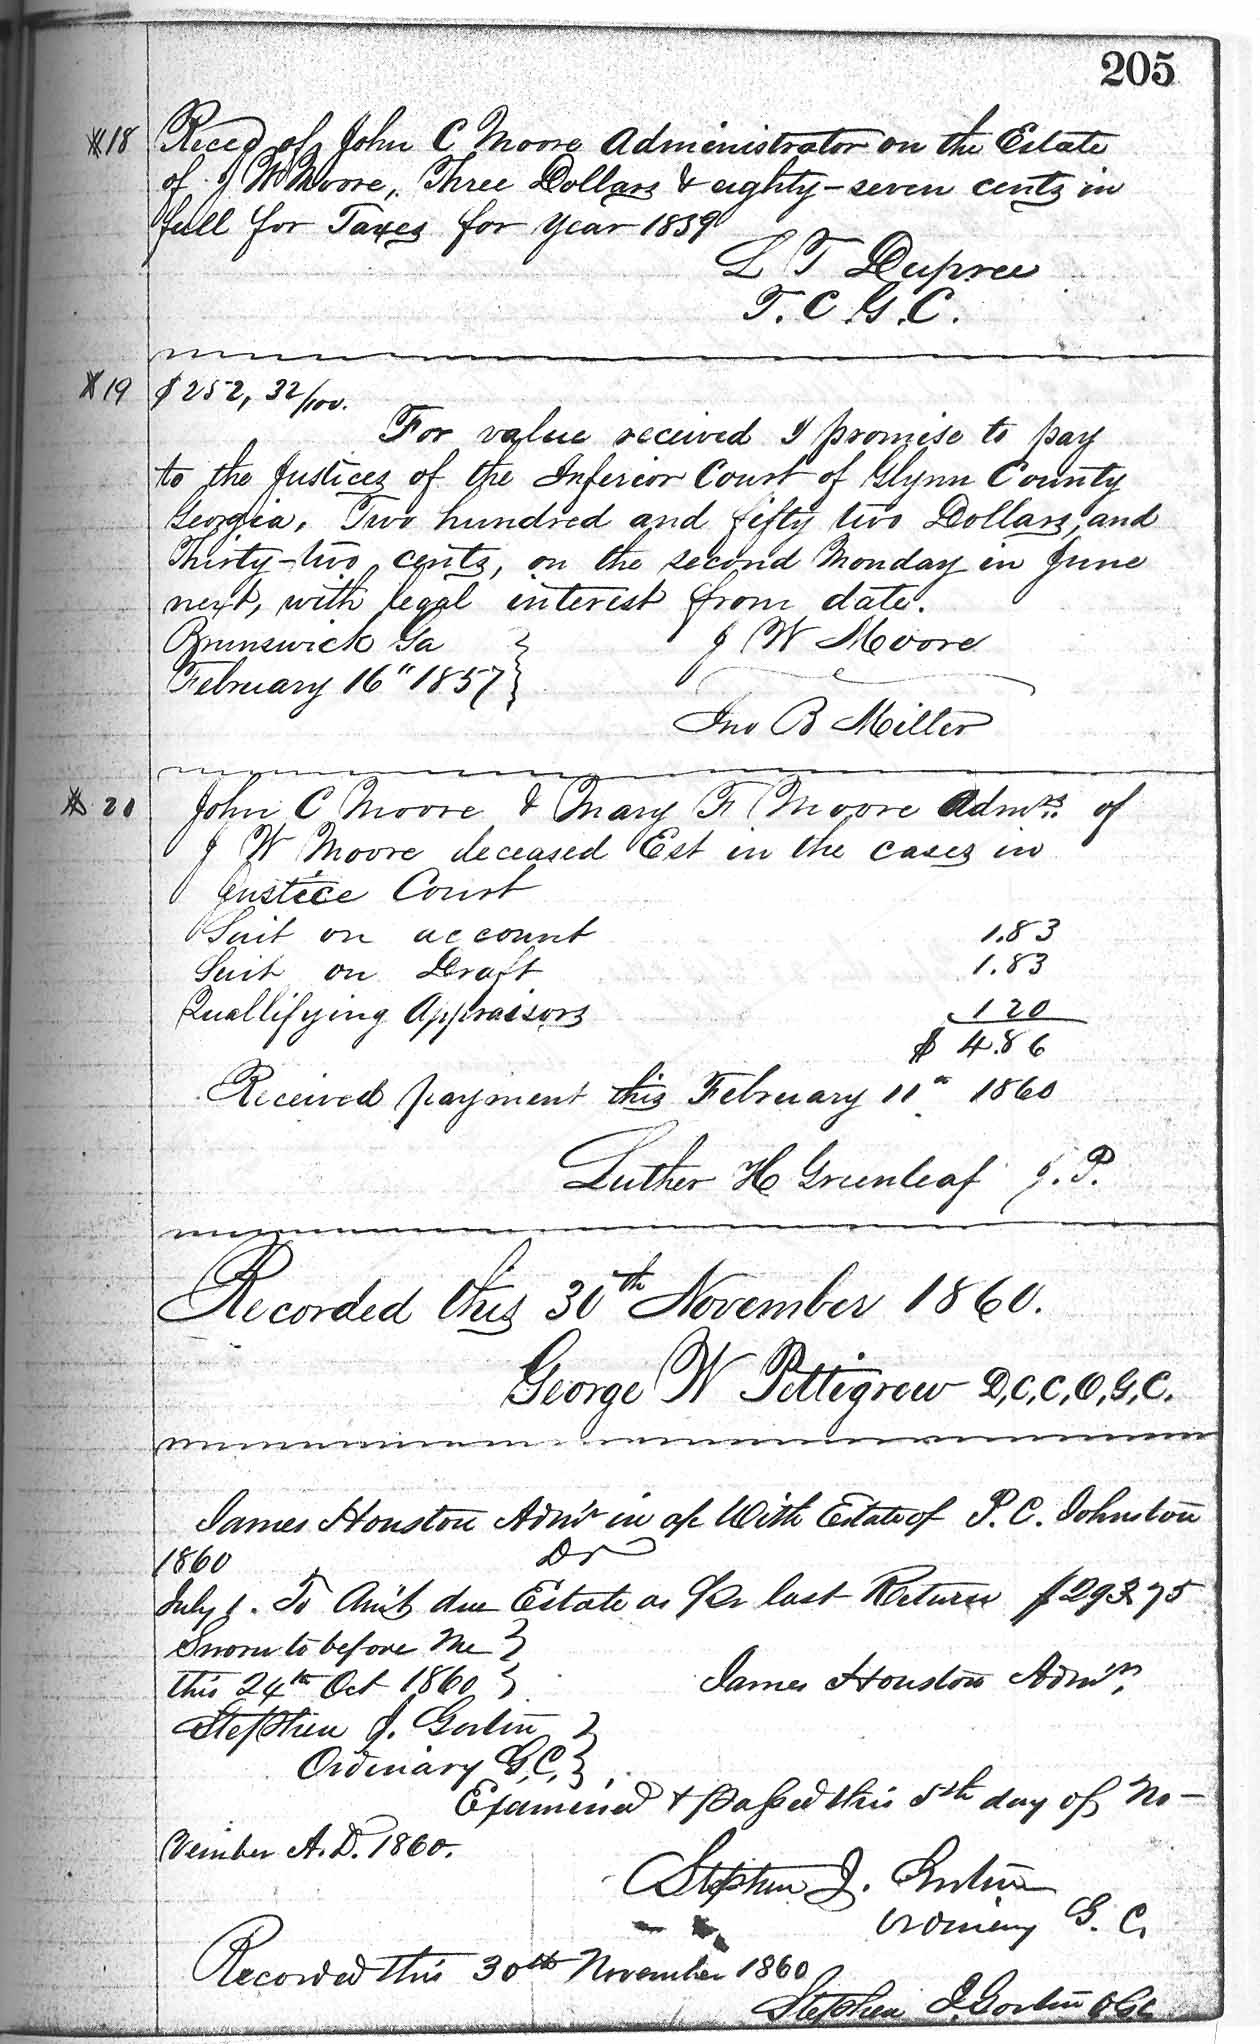 205
#18 Recd of John C Moore Administrator on the Estate
of J W Moore, Three Dollars & eighty-seven cents in
full for Taxes for year 1859
L T Dupree
T. C. G. C.
#19 $252, 32/100.
For value received I promise to pay
to the Justices of the Inferior Court of Glynn County
Georgia, Two hundred and fifty two Dollars, and
Thirty-two cents, on the second Monday in June
next, with legal interest from date.
Brunswick Ga } J W Moore
February 16" 1857 }
Jno B Miller
# 20 John C Moore & Mary F Moore Admrs. of
J W Moore deceased Est in the cases in
Justice Court
Suit on account 1.83
Suit on Draft 1.83
Quallifying Appraisors 1 20
$ 4.86
Received payment this February 11" 1860
Luther H Greenleaf J. P.
Recorded this 30th November 1860.
George W Pettigrew D,C,C,O,G,C.
James Houston Adm'r in a/c With Estate of P. C. Johnston
1860 Dr
July 1. To Am't due Estate as per last Return $293 75
Sworn to before Me }
this 24th Oct 1860 } James Houston Adm'r,
Stephen J. Gorton }
Ordinary G.C. }
Examined & passed this 5th day of No-
vember A.D. 1860.
Stephen J. Gorton
Ordinary G. C.
Recorded this 30th November 1860
Stephen J. Gorton OGC